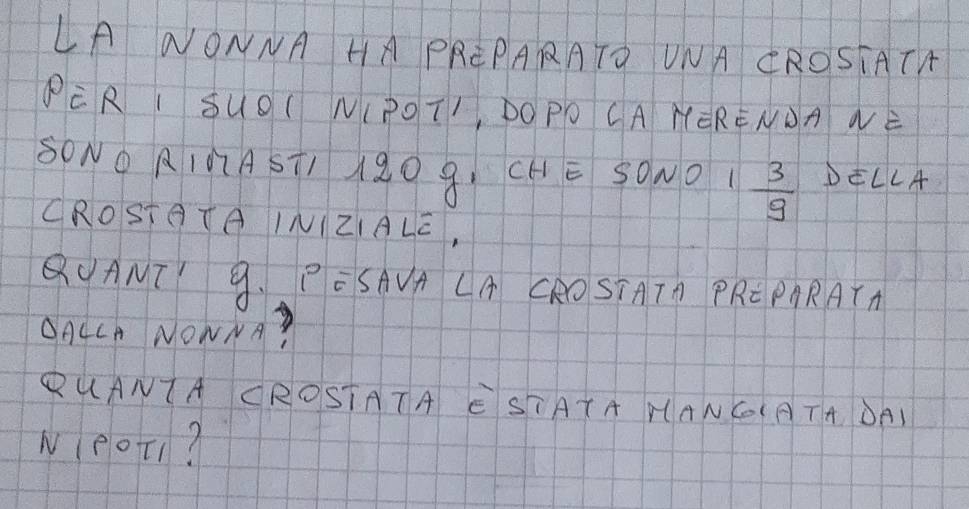 LA NONNA HA PREPARATO UNA CROSTATA
PER I SUOI NIPOTI, DOPO LA MERENDA NE
SONO RIMASTI 120 g. CHE SONO I 3/9 DELLA
CROSTATA INIZIALE.
QUANTI g. PESAVA LA CROSTATA PREPARATA
DALLA NONNA?
QUANTA CROSTATA È STATA MANGIATA DAI
NIPOTI?